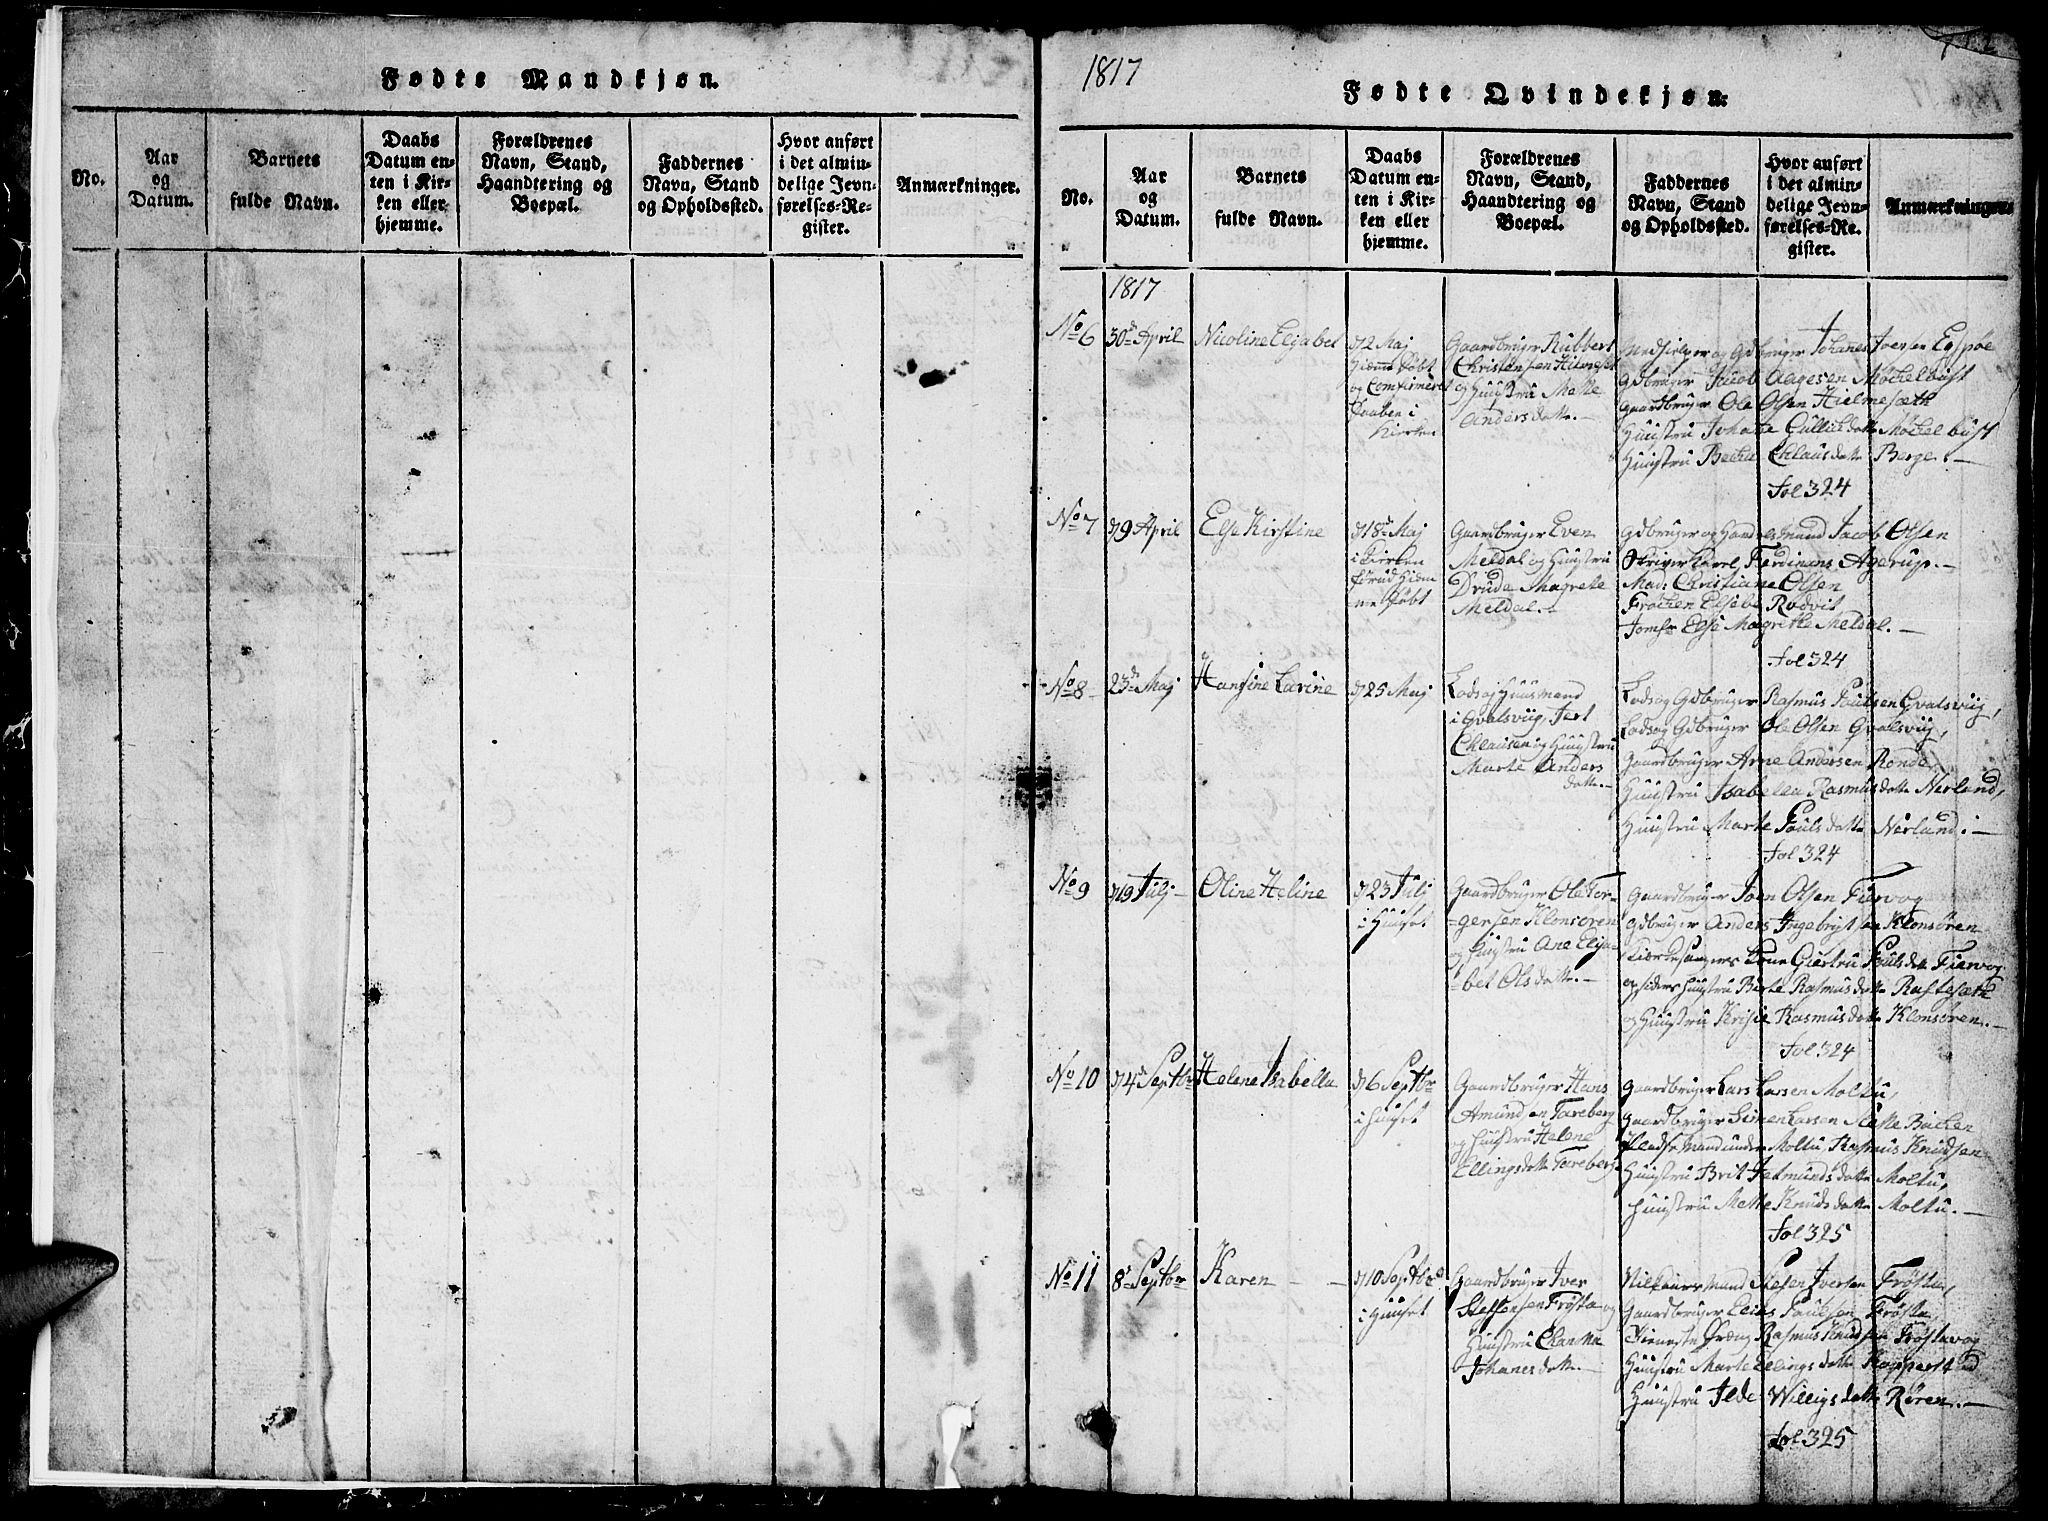 Fødte Mandkjøn.
No.
Aar
og
Datum.
Barnets
fulde Navn.
Daabs
Datum en-
ten i Kir-
ken eller
hjemme.
Forældrenes
Navn, Stand,
Haandtering og
Boepæl.
Faddernes
Navn, Stand
og Opholdssted.
Hvor anført
i det almin-
delige Jevn-
førelses-Re-
gister.
Anmærkninger.
1817
Fødte Qvindekjøn.
No.
Aar
og
Datum.
Barnets
fulde Navn.
Daabs
Datum en-
ten i Kir-
ken eller
hjemme.
Forældrenes
Navn, Stand,
Haandtering og
Boepæl.
Faddernes
Navn, Stand
og Opholdssted.
Hvor anført
i det almin-
delige Jevn-
førelses-Re-
gister.
Anmærkninger.
1817
No 6
30 April
Nicoline Elisabet
Maj
Hiemme døbt
og Confirmeret
Daaben i
Kirken
Gaardbruger Rubbert
Christensen Hilmeset
og Huustru Mette
Anders datter.-
og Gdbruger Johanes Joensen
Gdbruger Jacob Aagesen Møchelbust
gaardbruger Ole Olsen Hielmesæth
Huustru Johane datter Møchelbust
Huustru Chlausdatter Berge.-
Fol 324
No 7
April
Else Kirstine
18 Maj
i Kirken
forud hiem
me døbt
Gaardbruger Even
Meldal og Huustru
Drude Magrete
Meldal.-
Gdbruger og Handelsmand Jacob Olsen
Skriver Karl Ferdinans Agerup.-
Mad. Christiane Olsen
Frøken Elsebe Rodvit
Jomfr Else Magrethe Meldal.-
Fol 324
No 8
23 Maj
Hansine Larine
25 Maj
Lods og Huusmand
i Qvalsviig, Jert
Chlausen og Huustru
Marte Anders
datter.-
Lods og Gdbruger Rasmus Poulsen Qvalsviig,
Lods og Gdbruger Ole Olsen Qvalsviig,
Gaardbruger Arne Andersen Rønde,
Huustru Isabella Rasmusdatter Nerland,
Huustru Marte Poulsdatter Nerland.-
Fol 324
No 9
19 Julj
Oline Heline
23 Julj
i Huuset
Gaardbruger Ole Tor-
gersen Klonsøren
og Huustru Ane Elisa-
bet Olsdatter.-
Gaardbruger Joen Olsen Fiærvog
Gdbruger Anders Ingebrigtsen Klonsøren
Kone Giertru Poulsdatter Fiærvog
Huustru Birte Rasmusdatter Raftesæth
og Huustru Rasmusdatter Klonsøren.-
Fol 324
No 10
4 Septbr
Helene Isabella
6 Septbr
i Huuset
Gaardbruger Hans
Amundsen Tareberg
og Huustru Helene
Ellingsdatter Tareberg
Gaardbruger Lars Larsen Moltu,
Gaardbruger Simen Larsen Mette Bachen
Pladsemand under Moltu, Rasmus Knudsen
Huustru Brit Jetmundsdatter Moltu,
Huustru Mette Knudsdatter Moltu.-
Fol 325
No 11
8 Septbr
Karen
10 Septbr
i Huuset
Gaardbruger Iver
Steffensen Frøstæ og
Huustru
Johanes datter.-
mand Steffen Iversen Frøstæ,
Gaardbruger Elias Poulsen Frøstæ
Tieneste Dræng Rasmus Knudsen Frøstavog
Huustru Marte Ellingsdatter Koppersted
Huustru Ilde Willigsdatter Røren.-
Fol 325